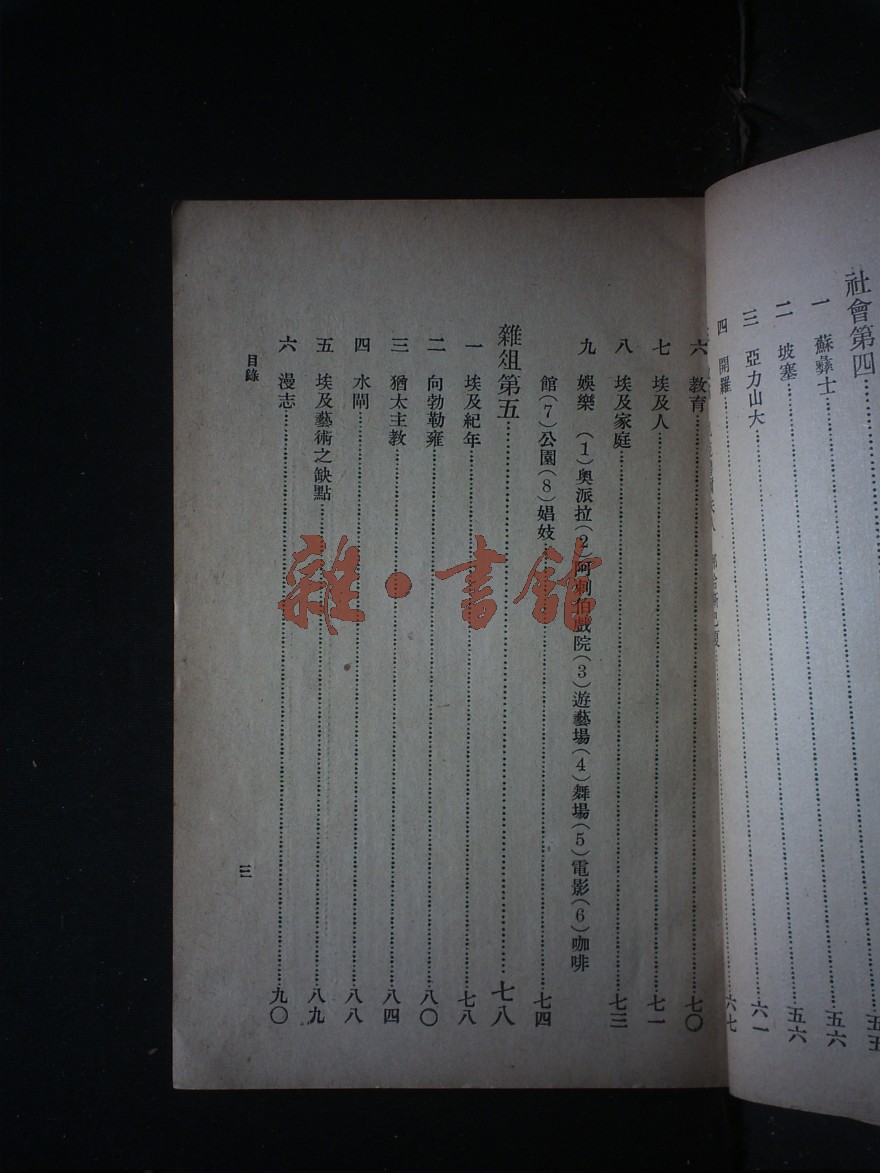 社會第四……五五
一 蘇彝士……五六
二 坡塞……五六
三 亞力山大……六一
四 開羅……六七
六 教育……七〇
七 埃及人……七一
八 埃及家庭……七三
九 娛樂 (1)奧派拉(2)阿剌伯戲院(3)遊藝場(4)舞場(5)電影(6)咖啡
館(7)公園(8)娼妓……七四
雜俎第五……七八
一 埃及紀年……七八
二 向勃勒雍……八〇
三 猶太主教……八四
四 水閘……八八
五 埃及藝術之缺點……八九
六 漫志……九〇
目錄
三
雜·書館